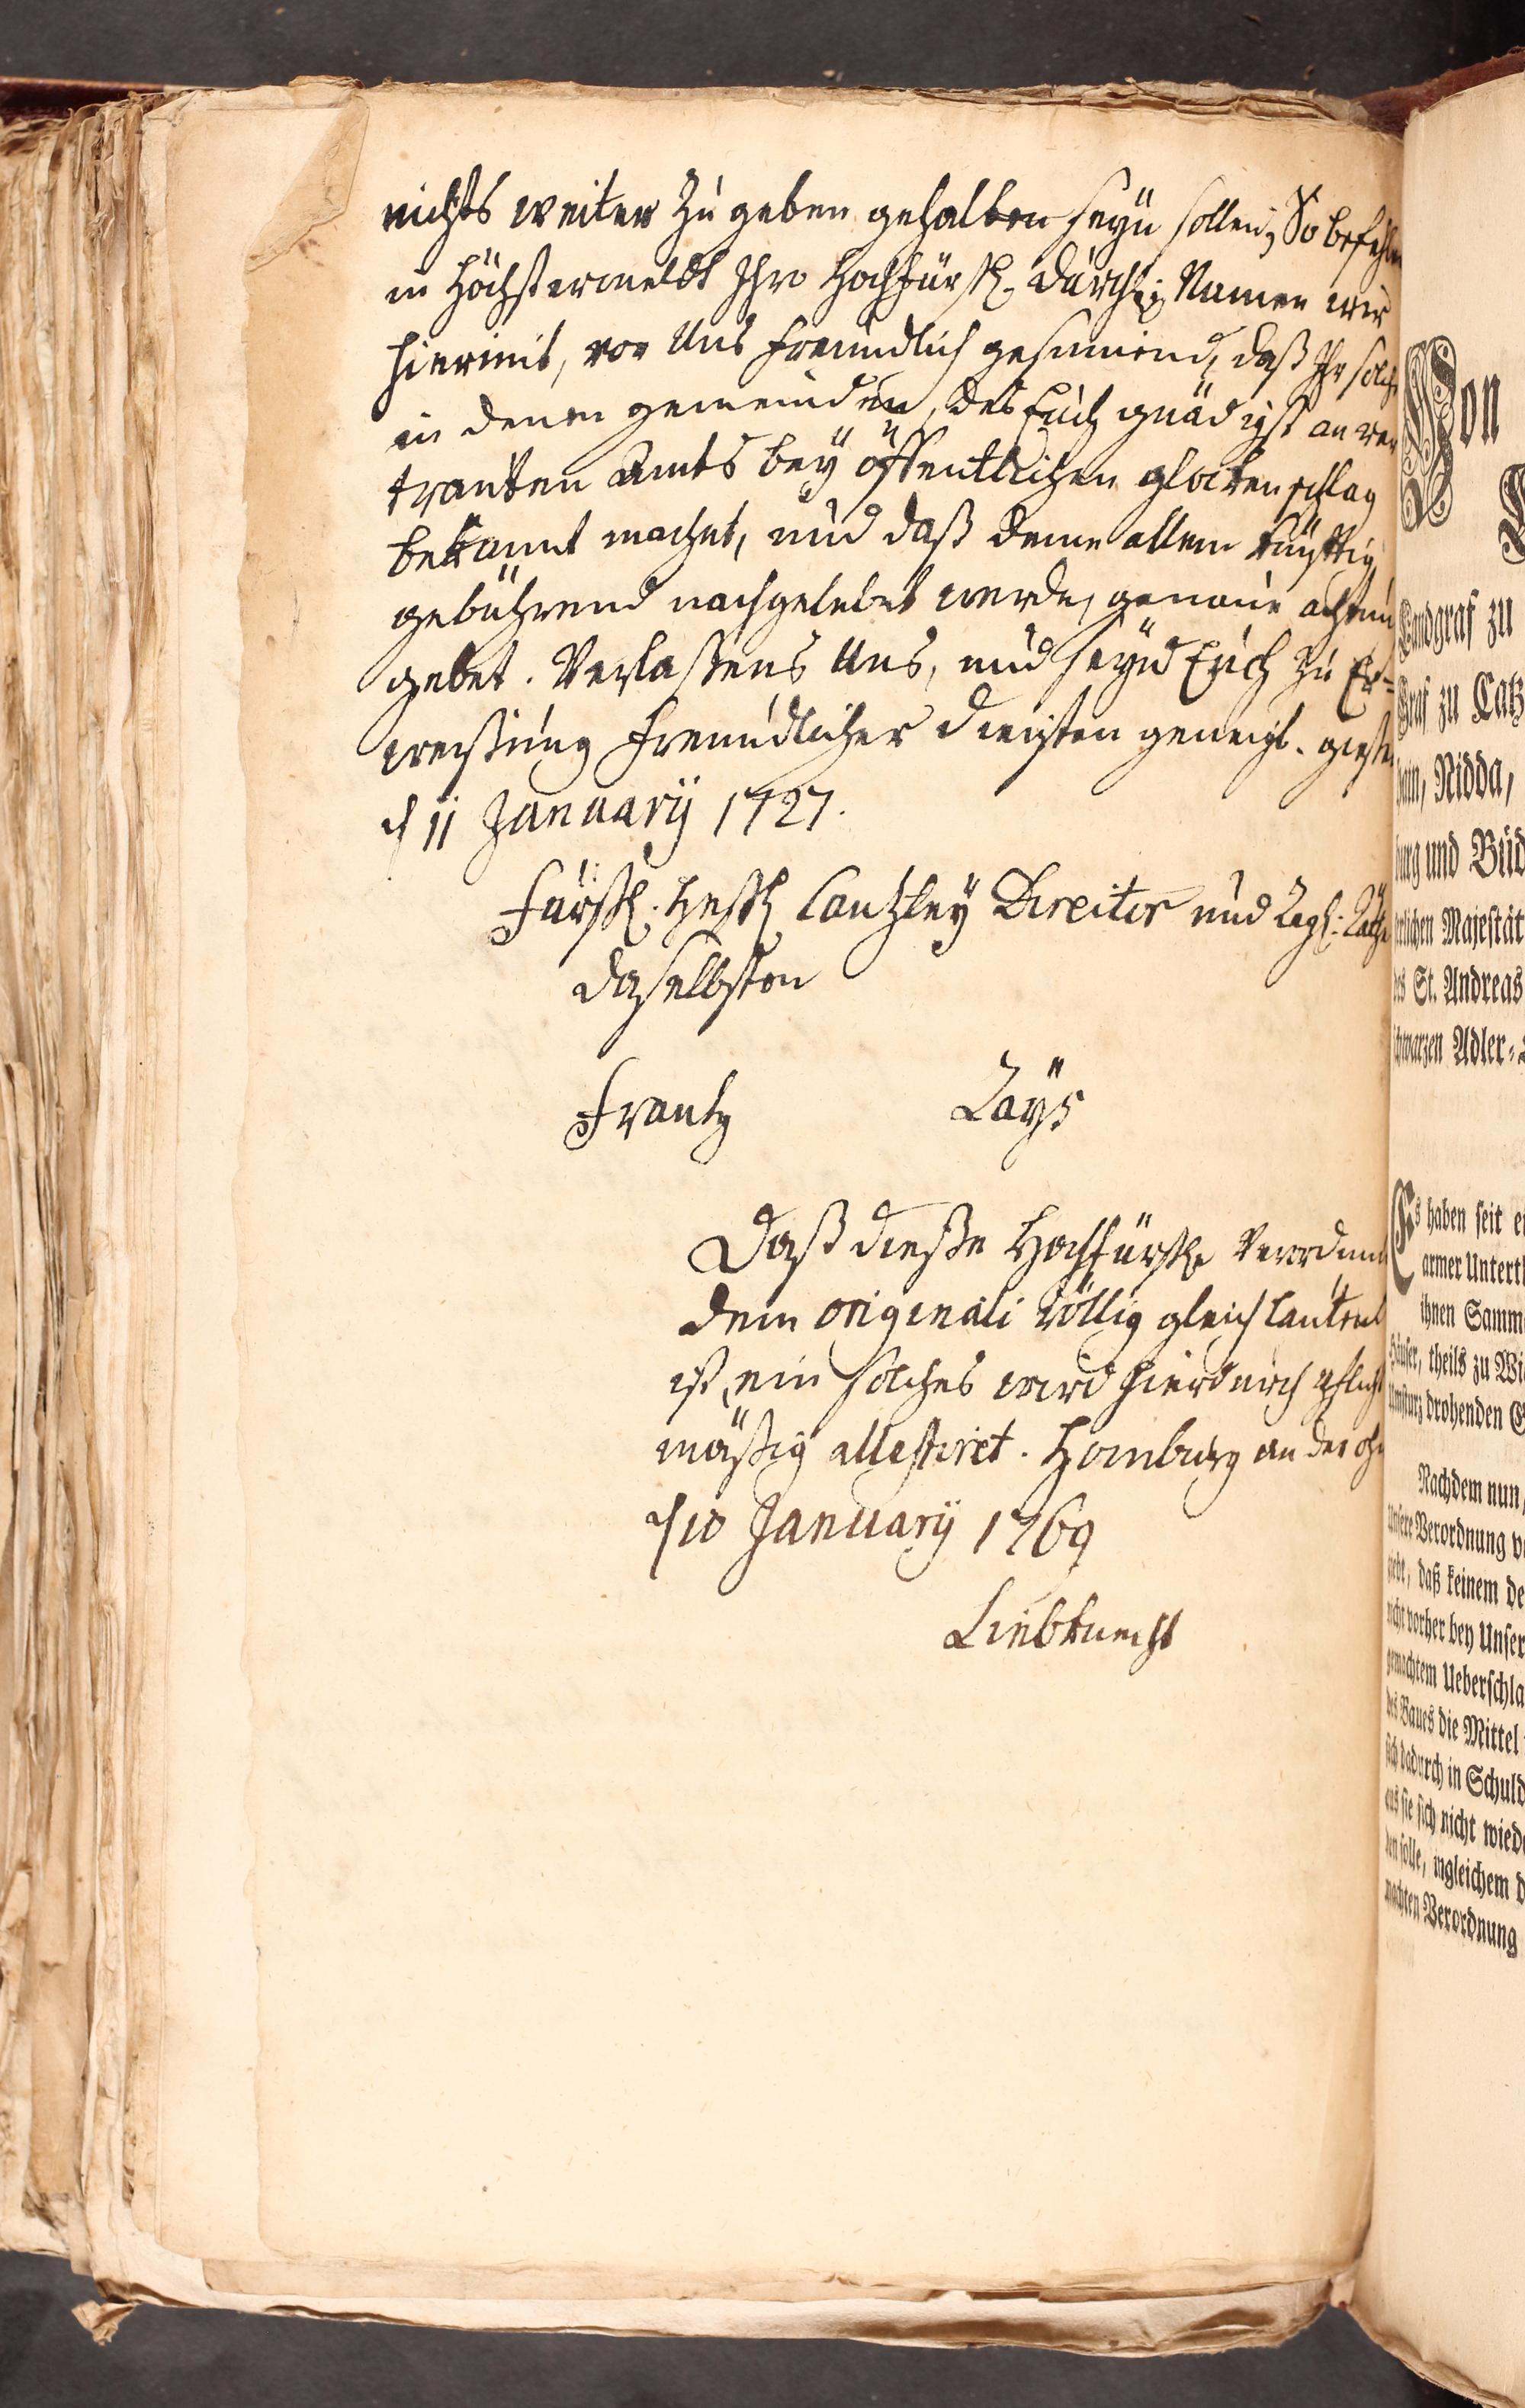 nichts weiter zu geben gehalten seyn sollen; So befehlen
in Höchstermeldt Ihro Hochfürstl. Durchl: Namen wir
hiermit, vor Uns freundlich gesinnend, daß Ihr solches
in denen gemeinden, des Euch gnädigst anver
trauten Amts bey öffentlichen glockenschlag
bekannt machet, und daß deme allem künfftig
gebührend nachgelebet werde, genaue achtung
gebet. Verlaßens Uns, und seynd Euch zu Er=
weißung freundlicher diensten geneigt. gießen
d 11 January 1727.
Fürstl. Heßl Cantzley Director und Regs: Räthe
daselbsten
Frantz Zays
Daß dieße Hochfürstl Verordnung
dem originali völlig gleich lautend
ist, ein solches wird hierdurch pflicht
mäßig attestiret. Homburg an der ohm
d 10 January 1769
Liebknecht
Von
Landgraf zu
Graf zu Catz
hain, Nidda,
burg und Büd
serlichen Majestät
des St. Andreas
schwarzen Adler=
Es haben seit ei
armer Untert
ihnen Samm
Häuser, theils zu Wi
Umsturz drohenden
Nachdem nun,
Unsere Verordnung v
giebt, daß keinem de
nicht vorher bey Unser
gemachtem Ueberschla
des Baues die Mittel
sich dadurch in Schuld
aus sie sich nicht wied
den solle, ingleichem d
machten Verordnung